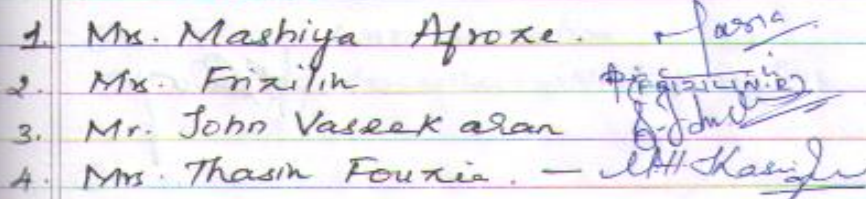 1. Ms. Mashiya Afroze.
2. Ms. Frizilin (FRIZILIN.R)
3. Mr. John Vaseekaran
4. Mrs. Thasin Fouzia. —